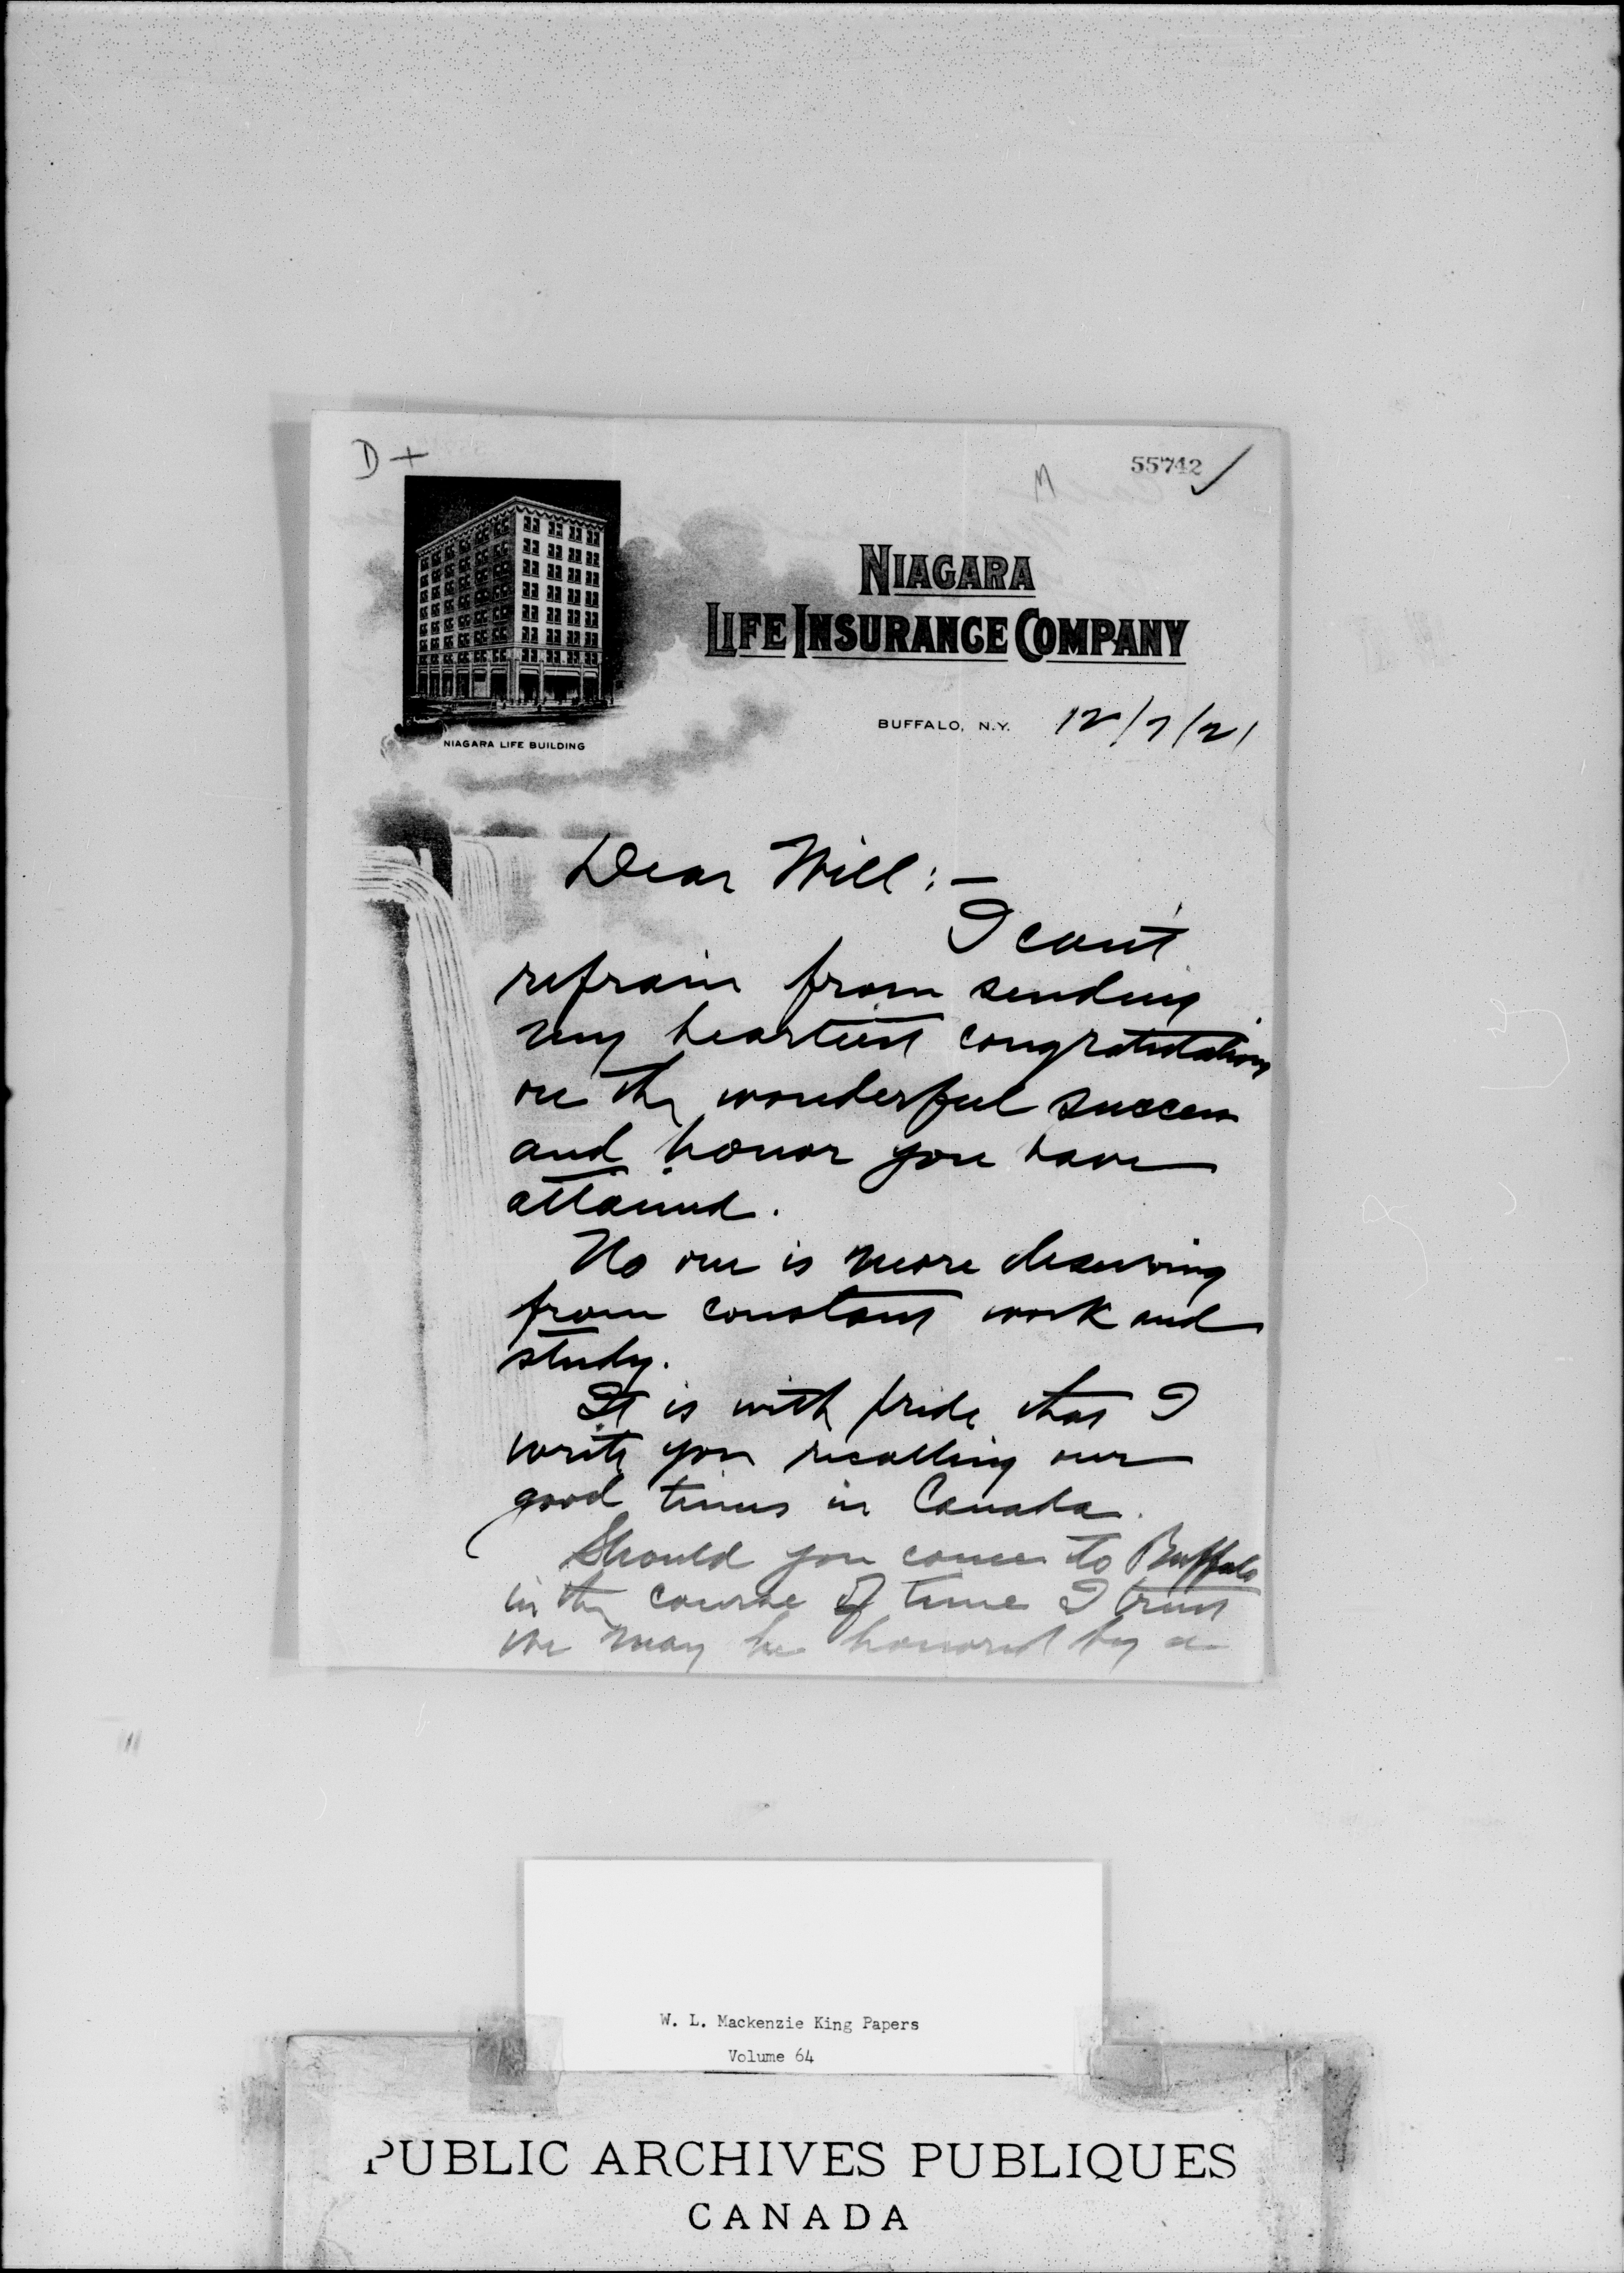 D +
55742
M
NIAGARA
LIFE INSURANCE COMPANY
BUFFALO, N.Y. 12/7/21
NIAGARA LIFE BUILDING
Dear Will:—
I can't
refrain from sending
my heartiest congratulations
on the wonderful success
and honor you have
attained.
No one is more deserving
from constant work and
study.
It is with pride that I
write you recalling our
good times in Canada.
Should you come to Buffalo
in the course of time I trust
we may be honored by a
W. L. Mackenzie King Papers
Volume 64
PUBLIC ARCHIVES PUBLIQUES
CANADA